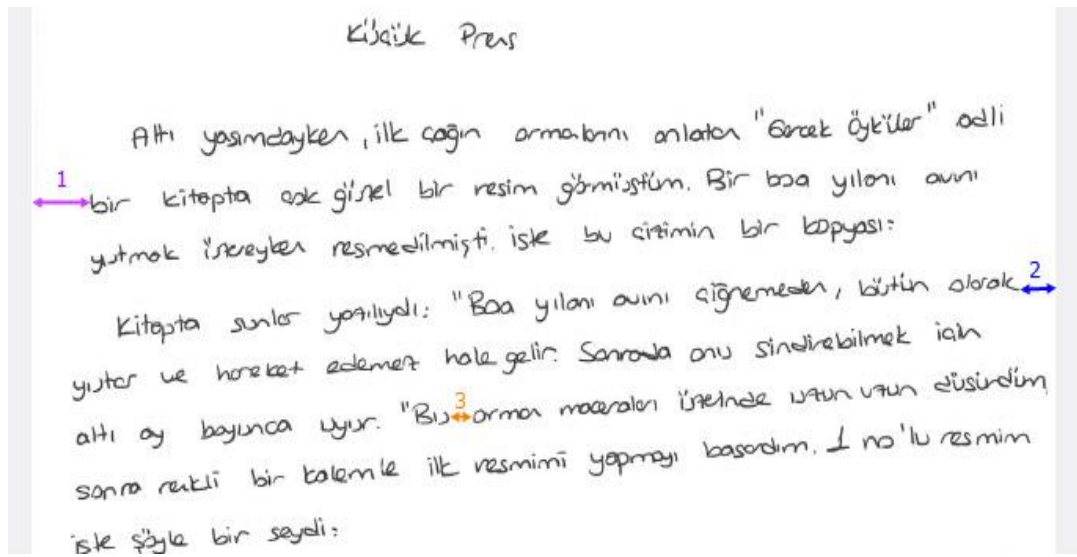 Küçük Prens
Altı yasımdayken, ilk çağın ormalarını anlatan "Gercek Öyküler" adli
1
bir kitapta cok güzel bir resim görmüştüm. Bir boa yılanı avını
yutmak üzereyken resmedilmişti. işke bu cizimin bir kopyası:
2
Kitapta sunlar yazılıydı: "Boa yılanı avını çiğnemeden, bütün olarak
yutar ve hareket edemez hale gelir. Sonrada onu sindirebilmek icin
3
altı ay boyunca uyur. "Bu orman maceraları üzelnde uzun uzun düsürdüm
sonra renkli bir kalemle ilk resmimi yapmayı basardım. 1 no'lu resmim
işte şöyle bir seydi: